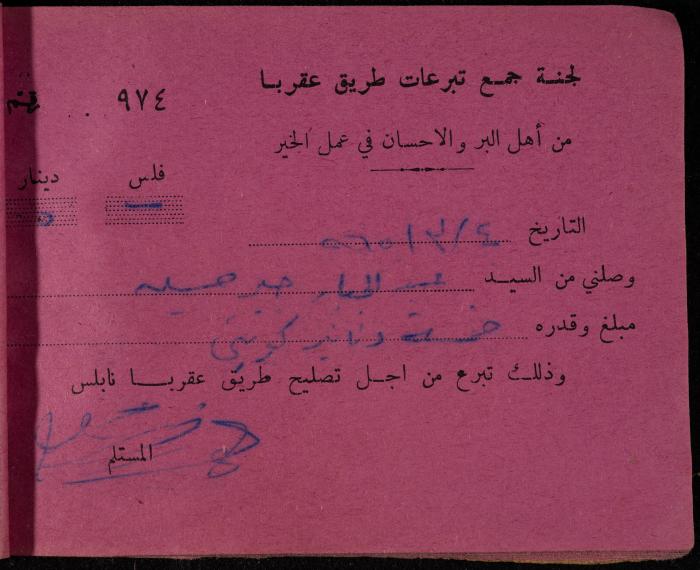 لجنة جمع تبرعات طريق عقربا
رقم ٩٧٤
من أهل البر والاحسان في عمل الخير
فلس دينار
— ٥
التاريخ ٤/٣/٩٦٥
وصلني من السيد عبد الجبار
مبلغ وقدره خمسة دنانير كويتي
وذلك تبرع من اجل تصليح طريق عقربا نابلس
المستلم